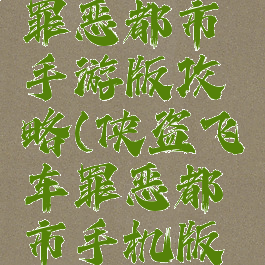 罪恶都市
手游版攻
略(侠盗飞
车罪恶都
市手机版